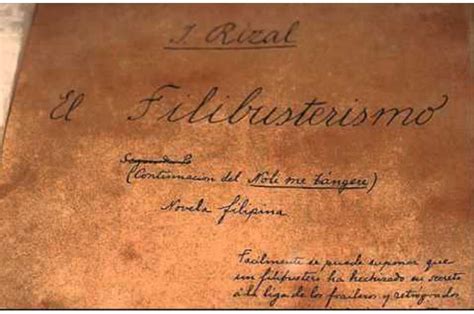 J. Rizal
El Filibusterismo
(Continuación del Noli me tángere)
Novela filipina
Facilmente se puede suponer que
un filibustero ha hechizado en secreto
á la liga de los fraileros y retrógrados